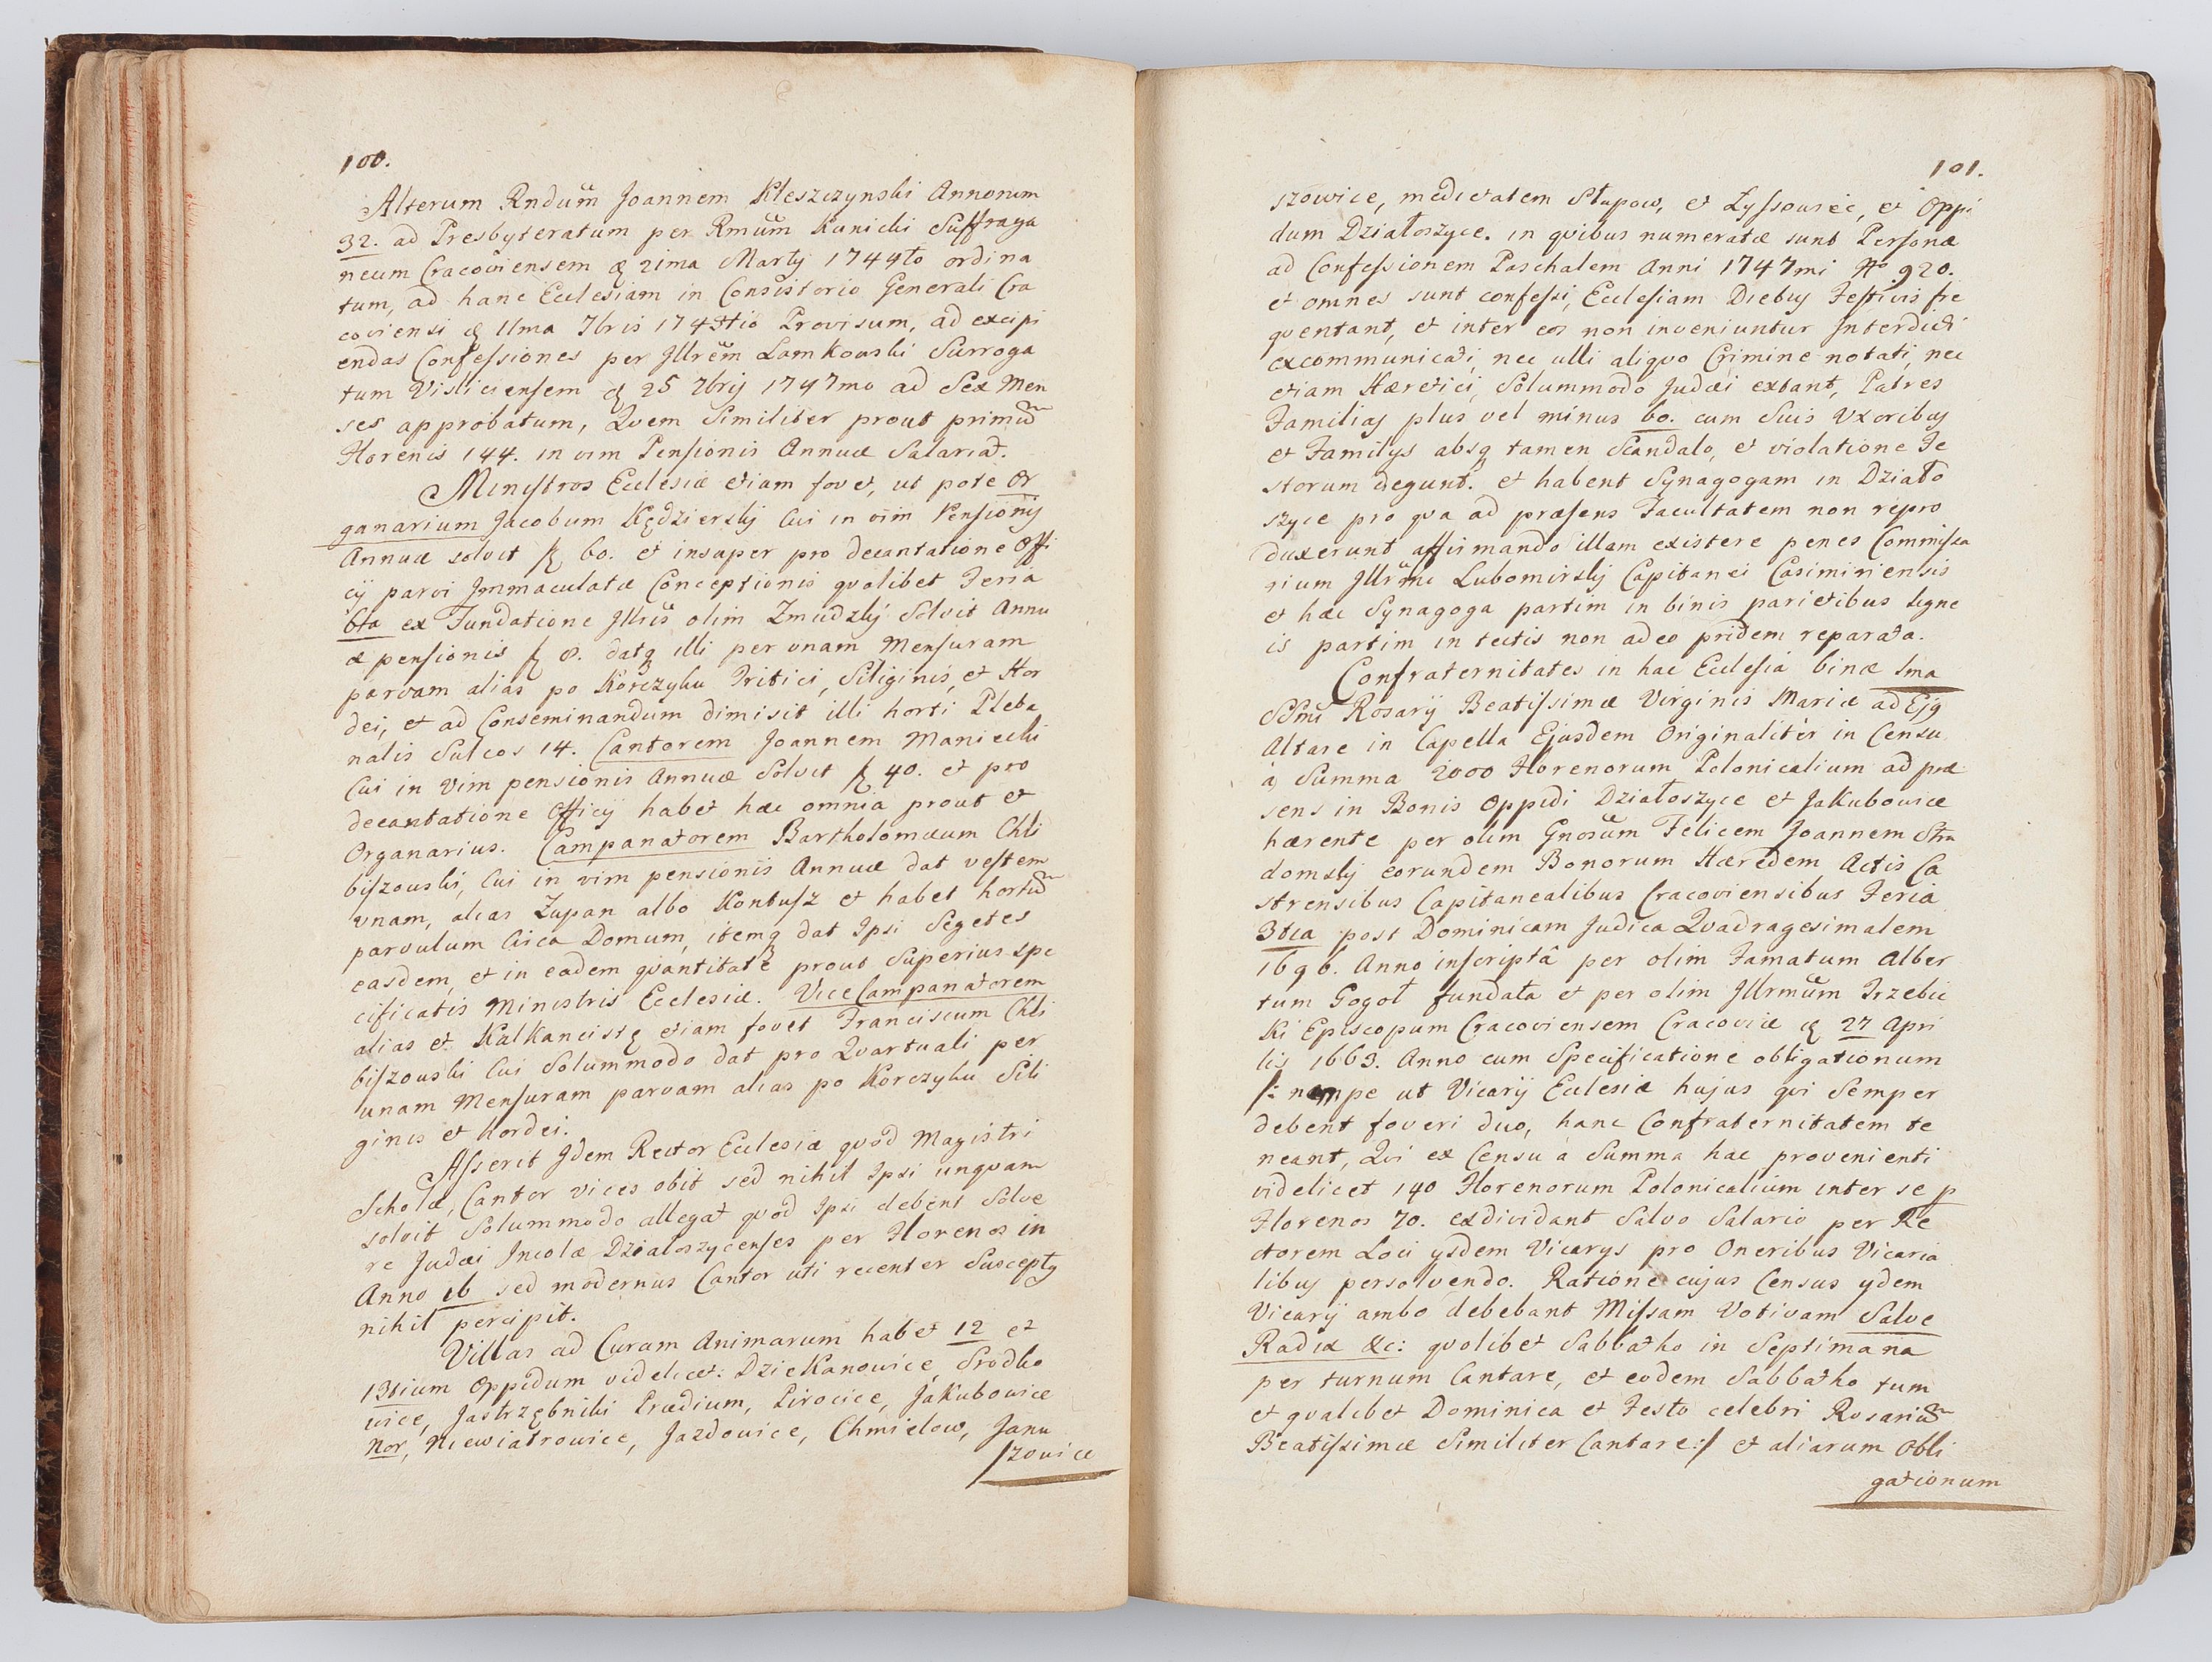 100.
Alterum Rndum Joannem Kleszczynski Annorum
32. ad Presbyteratum per Rmum Kunicki Suffraga
neum Cracoviensem 21ma Martij 1744to ordina
tum, ad hanc Ecclesiam in Consistorio Generali Cra
coviensi 11ma 7bris Provisum, ad excipi
endas Confessiones per Jllrem Lamkowski Surroga
tum Visliciensem 25 7brij 1747mo ad Sex Men
ses approbatum, Qvem Similiter prout primũ
Florenis 144. in vim Pensionis Annuæ Salariat.
Ministros Ecclesiæ etiam fovet, ut pote Or
ganarium Jacobum Kędzierskj Cui in vim Pensionij
Annuæ solvit fl 60. et insuper pro decantatione Offi
cij parvi Jmmaculatæ Conceptionis qvolibet Feria
6ta ex Fundatione Jllris olim Zmudzkj Solvit Annu
æ pensionis fl 8. datq illi per unam Mensuram
parvam alias po Korczyku Tritici, Siliginis, et Hor
dei, et ad Conseminandum dimisit illi horti Pleba
nalis Sulcos 14. Cantorem Joannem Maniecki
Cui in vim pensionis Annuæ Solvit fl 40. et pro
decantatione Officij habet hæc omnia prout et
Organarius. Campanatorem Bartholomæum Chli
biszowski, Cui in vim pensionis Annuæ dat vestem
unam, alias Zupan albo Kontusz et habet hortũ
parvulum Circa Domum, itemq dat Ipsi Segetes
easdem, et in eadem qvantitate prout Superius spe
cificatis Ministris Ecclesiæ. ViceCampanatorem
alias et Kalkancistę etiam fovet Franciscum Chli
biszowski Cui Solummodo dat pro Qvartuali per
unam Mensuram parvam alias po Korczyku Sili
ginis et hordei.
Asserit Jdem Rector Ecclesiæ qvod Magistri
Scholæ, Cantor vices obit sed nihil Ipsi unqvam
solvit Solummodo allegat qvod Ipsi debent Solve
re Judæi Incolæ Działoszycenses per Florenos in
Anno 16 sed modernus Cantor uti recenter Susceptq
nihil percipit.
Villas ad Curam Animarum habet 12 et
13tium Oppidum videlicet: Dziekanowice, Srodko
wice, Jastrzębniki Prædium, Pirocice, Jakubowice
Nor, Niewiatrowice, Jazdowice, Chmielow, Janu
szowice
101.
szowice, medietatem Stupow, et Łyssowiec, et Oppi
dum Działoszyce. in qvibus numeratæ sunt Personæ
ad Confessionem Paschalem Anni 1747mi No 920.
et omnes sunt confessi, Ecclesiam Diebus Festivis fre
qventant, et inter eos non inveniuntur Interdicti
excommunicati, nec ulli aliqvo Crimine notati, nec
etiam Hæretici, Solummodo Judæi extant, Patres
Familias plus vel minus 60. cum Suis Uxoribus
et Familijs absq tamen Scandalo, et violatione Fe
storum degunt. et habent Synagogam in Działo
szyce pro qva ad præsens Facultatem non repro
duxerunt affirmando illam existere penes Commissa
rium Jllrmi Lubomirskj Capitanei Casimiriensis
et hæc Synagoga partim in binis parietibus ligne
is partim in tectis non adeo pridem reparata.
Confraternitates in hac Ecclesia binæ 1ma
SSmi Rosarij Beatissimæ Virginis Mariæ ad Ejq
Altare in Capella Ejusdem Originaliter in Censu
à Summa 2000 Florenorum Polonicalium ad præ
sens in Bonis Oppidi Działoszyce et Jakubowice
hærente per olim Gnosum Felicem Joannem Stra
domskj eorundem Bonorum Hæredem Actis Ca
strensibus Capitanealibus Cracoviensibus Feria
3tia post Dominicam Judica Qvadragesimalem
1696. Anno inscriptâ per olim Famatum Alber
tum Gogoł fundata et per olim Jllrmum Trzebic
ki Episcopum Cracoviensem Cracoviæ 27 Apri
lis 1663. Anno cum Specificatione obligationum
/: nempe ut Vicarij Ecclesiæ hujus qvi Semper
debent foveri duo, hanc Confraternitatem te
neant, Qvi ex Censu à Summa hac provenienti
videlicet 140 Florenorum Polonicalium inter se p
Florenos 70. exdividant Salvo Salario per Re
ctorem Loci ijsdem Vicarijs pro Oneribus Vicaria
libus persolvendo. Ratione cujus Census ijdem
Vicarij ambo debebant Missam Votivam Salve
Radix &c: qvolibet Sabbatho in Septimana
per turnum Cantare, et eodem Sabbatho tum
et qvalibet Dominica et Festo celebri Rosariũ
Beatissimæ Similiter Cantare:/ et aliarum Obli
gationum